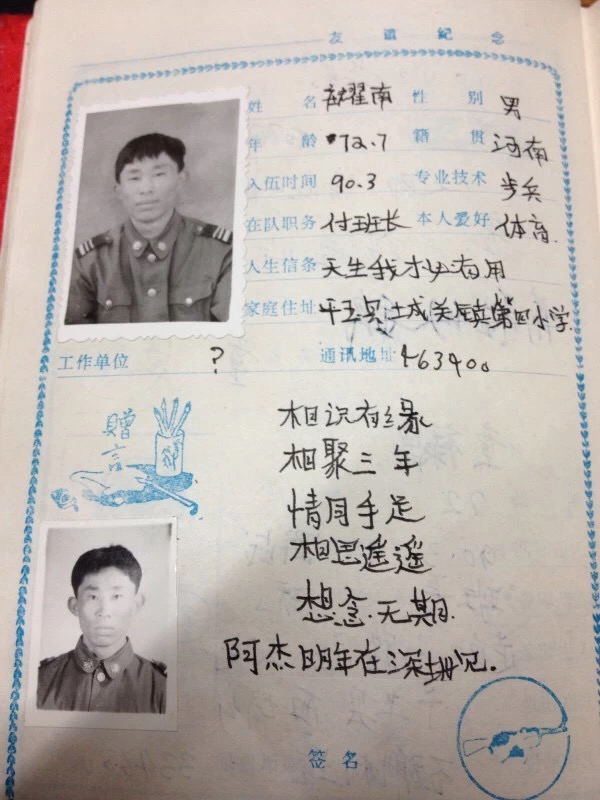 友谊纪念
姓名 耀南 性别 男
年龄 72.7 籍贯 河南
入伍时间 90.3 专业技术 步兵
在队职务 付班长 本人爱好 体育
人生信条 天生我才必有用
家庭住址 平 县 城关镇第四小学
工作单位 ? 通讯地址 463400
赠言
相识有缘
相聚三年
情同手足
相思遥遥
想念无期
阿杰明年在深圳见.
签名